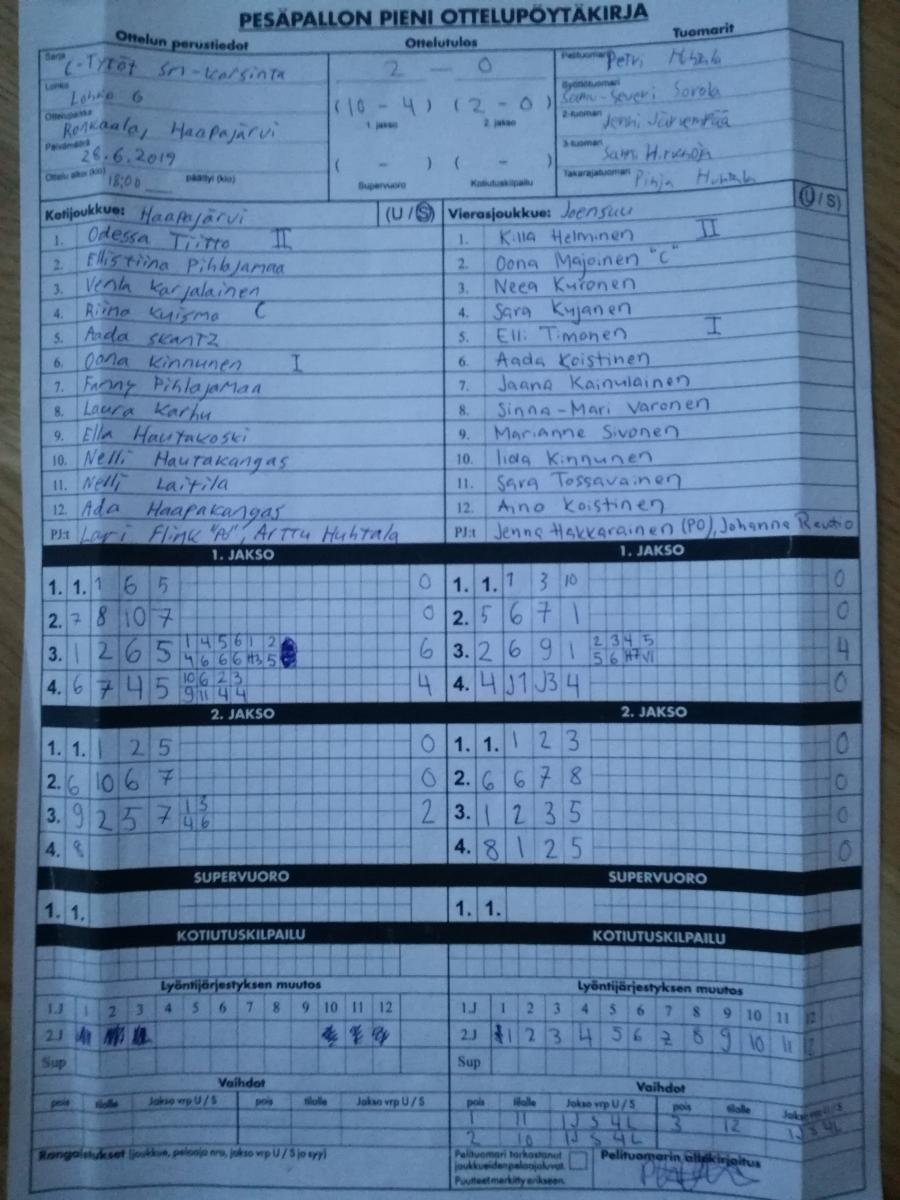 PESÄPALLON PIENI OTTELUPÖYTÄKIRJA
Ottelun perustiedot Ottelutulos Tuomarit
Sarja C-Tytöt SM-karsinta
Lohko Lohko 6
Ottelupaikka Ronkaala, Haapajärvi
Päivämäärä 28.6.2019
Ottelu alkoi (klo) 18:00 päättyi (klo)
2 — 0
(10 - 4) (2 - 0)
1. jakso 2. jakso
( - ) ( - )
Supervuoro Kotiutuskilpailu
Pelituomari Petri
Syöttötuomari Samu-Severi Sorola
2-tuomari Jenni Järvenpää
3-tuomari Sami
Takarajatuomari Pinja Huhtala
Kotijoukkue: Haapajärvi (U / S)
1. Odessa Tiitto II
2. Ellistiina Pihlajamaa
3. Venla Karjalainen
4. Riina Kuisma C
5. Aada Skantz
6. Oona Kinnunen I
7. Fanny Pihlajamaa
8. Laura Karhu
9. Ella Hautakoski
10. Nelli Hautakangas
11. Nelli Laitila
12. Ada Haapakangas
PJ:t Lari Flink "PJ", Arttu Huhtala
Vierasjoukkue: Joensuu (U / S)
1. Killa Helminen II
2. Oona Majoinen "C"
3. Neea Kuronen
4. Sara Kujanen
5. Elli Timonen I
6. Aada Koistinen
7. Jaana Kainulainen
8. Sinna-Mari Varonen
9. Marianne Sivonen
10. Iida Kinnunen
11. Sara Tossavainen
12. Aino Koistinen
PJ:t Jenna Hakkarainen (PO), Johanna Rautio
1. JAKSO
1. 1. 1 6 5 0
2. 7 8 10 7 0
3. 1 2 6 5 1 4 5 6 1 2 6
4 6 6 6 H3 5
4. 6 7 4 5 10 6 2 3 4
9 11 4 4
1. JAKSO
1. 1. 1 3 10 0
2. 5 6 7 1 0
3. 2 6 9 1 2 3 4 5 4
5 6 H7 V1
4. 4 J1 J3 4 0
2. JAKSO
1. 1. 1 2 5 0
2. 6 10 6 7 0
3. 9 2 5 7 1 3 2
4 6
4. 8
2. JAKSO
1. 1. 1 2 3 0
2. 6 6 7 8 0
3. 1 2 3 5 0
4. 8 1 2 5 0
SUPERVUORO SUPERVUORO
1. 1. 1. 1.
KOTIUTUSKILPAILU KOTIUTUSKILPAILU
Lyöntijärjestyksen muutos
1.J 1 2 3 4 5 6 7 8 9 10 11 12
2.J
Sup
Lyöntijärjestyksen muutos
1.J 1 2 3 4 5 6 7 8 9 10 11 12
2.J 1 2 3 4 5 6 7 8 9 10 11 12
Sup
Vaihdot
pois tilalle Jakso vrp U / S pois tilalle Jakso vrp U / S
Vaihdot
pois tilalle Jakso vrp U / S pois tilalle Jakso vrp U / S
1 11 1J S 4L 3 12 1J S 4L
2 10 1J S 4L
Rangaistukset (joukkue, pelaaja nro, jakso vrp U / S ja syy)
Pelituomari tarkastanut
joukkueiden pelaajaluvat.
Puutteet merkitty erikseen.
Pelituomarin allekirjoitus